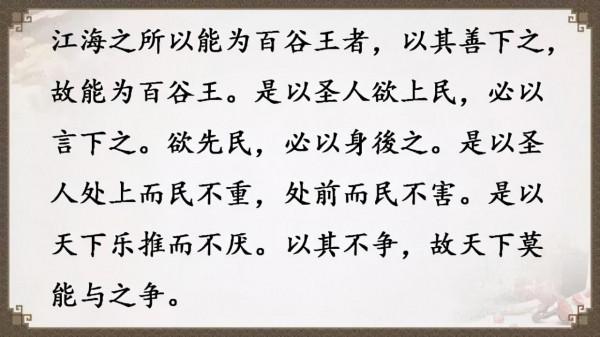 江海之所以能为百谷王者，以其善下之，
故能为百谷王。是以圣人欲上民，必以
言下之。欲先民，必以身後之。是以圣
人处上而民不重，处前而民不害。是以
天下乐推而不厌。以其不争，故天下莫
能与之争。